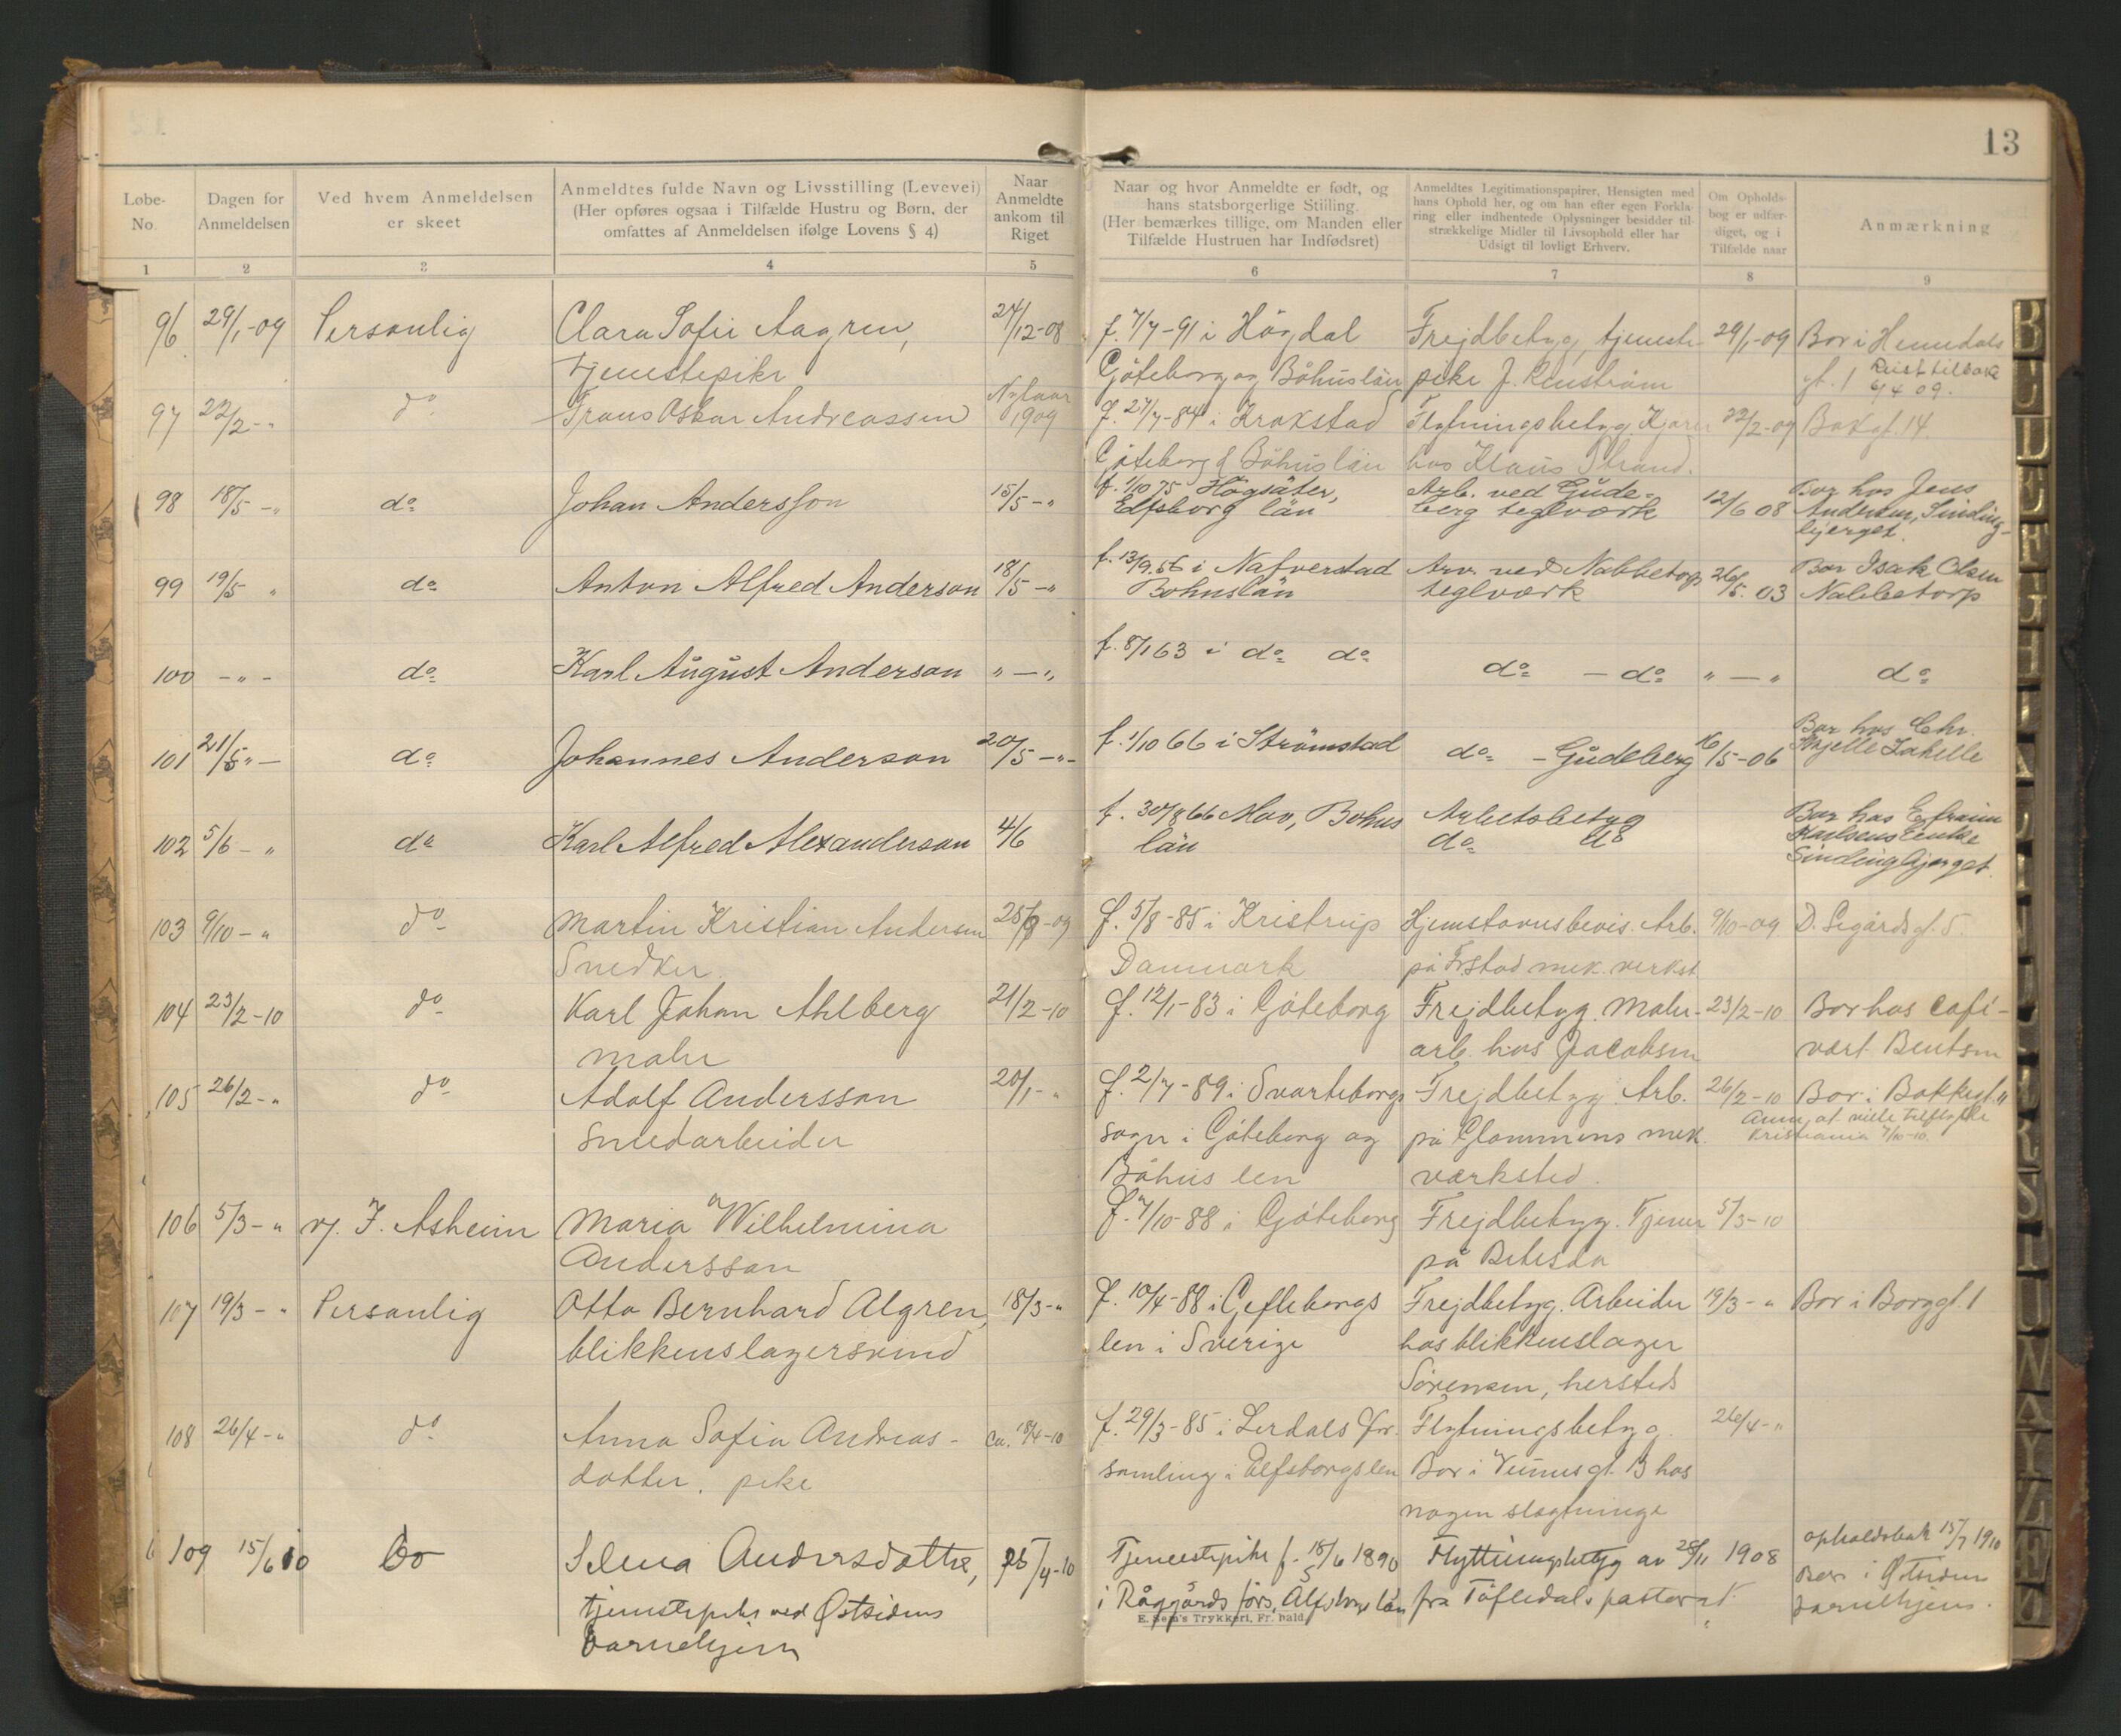 13
Løbe-No.
Dagen for Anmeldelsen
Ved hvem Anmeldelsen er skeet
Anmeldtes fulde Navn og Livsstilling (Levevei)
(Her opføres ogsaa i Tilfælde Hustru og Børn, der
omfattes af Anmeldelsen ifølge Lovens § 4)
Naar Anmeldte ankom til Riget
Naar og hvor Anmeldte er født, og
hans statsborgerlige Stiiling.
(Her bemærkes tillige, om Manden eller
Tilfælde Hustruen har Indfødsret)
Anmeldtes Legitimationspapirer, Hensigten med
hans Ophold her, og om han efter egen Forkla-
ring eller indhentede Oplysninger besidder til-
strækkelige Midler til Livsophold eller har
Udsigt til lovligt Erhverv.
Om Opholds-
bog er udfær-
diget, og i
Tilfælde naar
Anmærkning
1 2 3 4 5 6 7 8 9
96 29/1-09 Personlig Clara Sofie Aagren, 27/12-08 f. 7/7-91 i Högdal Frejdbetyg, tjeneste- 29/1-09 Bor i
Tjenestepike Göteborg og Bohuslän pike J. Renström gt. 1 Reist tilbake
6/4 09.
97 22/2-" do Frans Oskar Andreassen Nytaar 1909 f. 27/7-84 i Krokstad Flytningsbetyg 22/2-09 gt. 14.
Göteborg & Bohuslän hos Klaus Strand.
98 18/5-" do Johan Andersson 15/5-" f. 1/10 75 Högsäter, Arb. ved Gude- 12/6 08 Bor hos Jens
Elfsborg län berg teglværk Andersen, Sinding-
bjerget.
99 19/5 " do Anton Alfred Anderson 18/5-" f. 13/9.56 i Nafverstad Arb. ved Nabbetorp 26/5. 03 Bor Isak Olsen
Bohuslän teglværk Nabbetorp
100 -"- do Karl August Anderson "-" f. 8/1 63 i do do do - do "-" do
101 21/5"- do Johannes Anderson 20/5-"- f. 1/10 66 i Strömstad do - Gudeberg 16/5-06 Bor hos Chr.
102 5/6-" do Karl Alfred Alexanderson 4/6 f. 30/8 66 Mov, Bohus Arbetsbetyg Bor hos Efraim
län do do Karlsens Enke
Sindingbjerget.
103 9/10-" do Martin Kristian Andersen 25/8-09 f. 5/8-85 i Kristrup Hjemstavnsbevis. Arb. 9/10-09 gt. 5.
Snedker Danmark på Frstad mek. verkst.
104 23/2-10 do Karl Johan Ahlberg 21/2-10 f. 12/1-83 i Göteborg Frejdbetyg. Maler- 23/2-10 Bor hos café-
maler arb. hos Jacobsen vært Bentsen
105 26/2-" do Adolf Andersson 20/1-" f. 2/7-89 i Svarteborgs Frejdbetyg Arb. 26/2-10 Bor i Bakkegt. 11
smedarbeider sogn i Göteborg og på Glommens mek. Anm. at ville tilflytte
Kristiania 7/10-10.
Bohus len værksted.
106 5/3-" v. J. Asheim Maria Wilhelmina f. 7/10-88 i Göteborg Frejdbetyg. Tjener 5/3-10
Andersson på Betesda
107 19/3-" Personlig Otto Bernhard Algren, 18/3-" f. 10/4-88 i Gefleborgs Frejdbetyg. Arbeider 19/3-" Bor i Borggt. 1
blikkenslagersvend len i Sverige hos blikkenslager
Sörensen, hersteds
108 26/4-" do Anna Sofia Andreas- ca. 18/4-10 f. 29/3-85 i Lerdals för- Flytningsbetyg. 26/4-"
dotter, pike samling i Elfsborgslen Bor i Venusgt. 13 hos
nogen slægtninge
109 15/6 10 Do Selma Andersdotter, 15/4-10 Tjenestepike f. 18/6 1890 Flyttningsbetyg av 28/11 1908 opholdsbok 15/7 1910
tjenestepike ved Østsidens i Råggärds förs. Älfsborgs län fra Töftedals pastorat Bor i Østsidens
Barnehjem barnehjem.
E. Sem's Trykkeri, Fr.hald.
B C D E F G H I K L M N O P R S T U W Y Z Ø